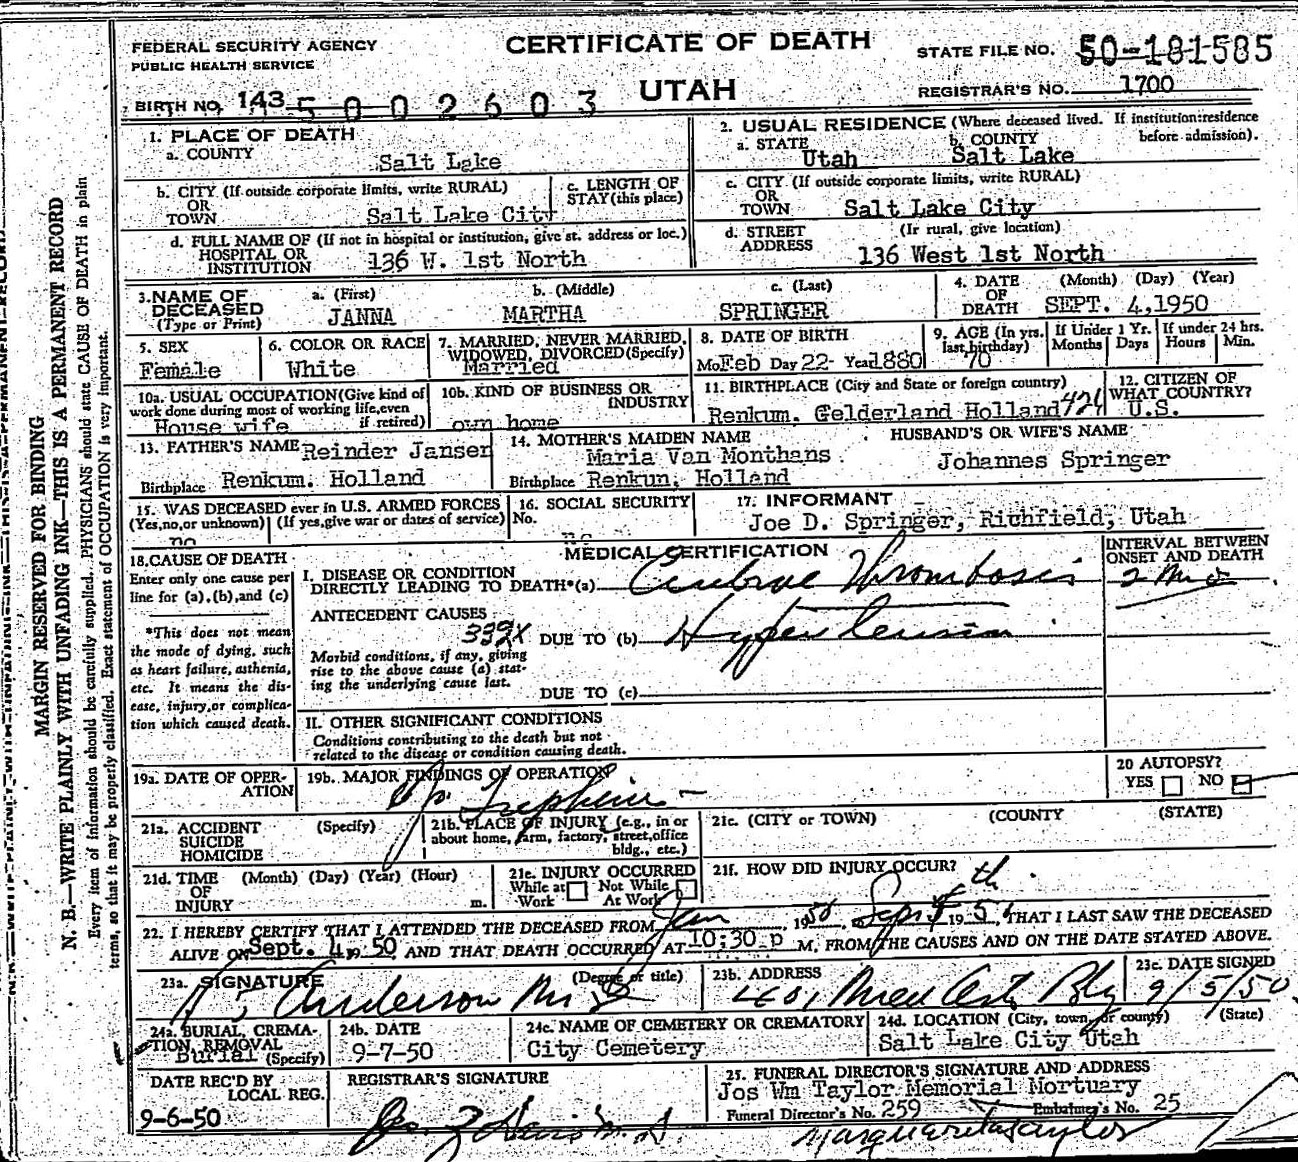 FEDERAL SECURITY AGENCY
PUBLIC HEALTH SERVICE
CERTIFICATE OF DEATH
UTAH
STATE FILE NO. 50-181585
REGISTRAR'S NO. 1700
BIRTH NO. 143 5002603
1. PLACE OF DEATH
a. COUNTY
Salt Lake
2. USUAL RESIDENCE (Where deceased lived. If institution:residence before admission).
a. STATE Utah b. COUNTY Salt Lake
b. CITY (If outside corporate limits, write RURAL)
OR
TOWN Salt Lake City
c. LENGTH OF
STAY (this place)
c. CITY (If outside corporate limits, write RURAL)
OR
TOWN Salt Lake City
d. FULL NAME OF (If not in hospital or institution, give st. address or loc.)
HOSPITAL OR
INSTITUTION 136 W. 1st North
d. STREET (If rural, give location)
ADDRESS 136 West 1st North
3. NAME OF
DECEASED
(Type or Print)
a. (First) JANNA
b. (Middle) MARTHA
c. (Last) SPRINGER
4. DATE (Month) (Day) (Year)
OF
DEATH SEPT. 4,1950
5. SEX
Female
6. COLOR OR RACE
White
7. MARRIED, NEVER MARRIED,
WIDOWED, DIVORCED (Specify)
Married
8. DATE OF BIRTH
Mo Feb Day 22 Year 1880
9. AGE (In yrs. last birthday) 70
If Under 1 Yr. Months Days
If under 24 hrs. Hours Min.
10a. USUAL OCCUPATION (Give kind of
work done during most of working life, even
if retired) House wife
10b. KIND OF BUSINESS OR
INDUSTRY
own home
11. BIRTHPLACE (City and State or foreign country)
Renkum. Gelderland Holland
12. CITIZEN OF
WHAT COUNTRY?
U.S.
13. FATHER'S NAME Reinder Jansen
Birthplace Renkum. Holland
14. MOTHER'S MAIDEN NAME
Maria Van Monthans
Birthplace Renkun, Holland
HUSBAND'S OR WIFE'S NAME
Johannes Springer
15. WAS DECEASED ever in U.S. ARMED FORCES
(Yes,no,or unknown) (If yes,give war or dates of service)
no
16. SOCIAL SECURITY
No.
no
17. INFORMANT
Joe D. Springer, Richfield, Utah
18. CAUSE OF DEATH
Enter only one cause per
line for (a), (b), and (c)
*This does not mean
the mode of dying, such
as heart failure, asthenia,
etc. It means the dis-
ease, injury, or complica-
tion which caused death.
MEDICAL CERTIFICATION
INTERVAL BETWEEN
ONSET AND DEATH
I. DISEASE OR CONDITION
DIRECTLY LEADING TO DEATH*(a) Cerebral Thrombosis
ANTECEDENT CAUSES
332X DUE TO (b) Hypertension
Morbid conditions, if any, giving
rise to the above cause (a) stat-
ing the underlying cause last.
DUE TO (c)
II. OTHER SIGNIFICANT CONDITIONS
Conditions contributing to the death but not
related to the disease or condition causing death.
19a. DATE OF OPER-
ATION
19b. MAJOR FINDINGS OF OPERATION
20 AUTOPSY?
YES NO
21a. ACCIDENT (Specify)
SUICIDE
HOMICIDE
21b. PLACE OF INJURY (e.g., in or
about home, farm, factory, street, office
bldg., etc.)
21c. (CITY or TOWN) (COUNTY (STATE)
21d. TIME (Month) (Day) (Year) (Hour)
OF
INJURY m.
21e. INJURY OCCURRED
While at Work Not While At Work
21f. HOW DID INJURY OCCUR?
22. I HEREBY CERTIFY THAT I ATTENDED THE DECEASED FROM Jan, 1950, Sept 4th 19 50, THAT I LAST SAW THE DECEASED
ALIVE ON Sept. 4, 19 50, AND THAT DEATH OCCURRED AT 10:30 p M, FROM THE CAUSES AND ON THE DATE STATED ABOVE.
23a. SIGNATURE (Degree or title)
Anderson M D
23b. ADDRESS
23c. DATE SIGNED
9/5/50
24a. BURIAL, CREMA-
TION, REMOVAL
Burial (Specify)
24b. DATE
9-7-50
24c. NAME OF CEMETERY OR CREMATORY
City Cemetery
24d. LOCATION (City, town, or county) (State)
Salt Lake City Utah
DATE REC'D BY
LOCAL REG.
9-6-50
REGISTRAR'S SIGNATURE
25. FUNERAL DIRECTOR'S SIGNATURE AND ADDRESS
Jos Wm Taylor Memorial Mortuary
Funeral Director's No. 259 Embalmer's No. 25
Marguerite Taylor
MARGIN RESERVED FOR BINDING
N. B.—WRITE PLAINLY WITH UNFADING INK—THIS IS A PERMANENT RECORD
Every item of information should be carefully supplied. PHYSICIANS should state CAUSE OF DEATH in plain
terms, so that it may be properly classified. Exact statement of OCCUPATION is very important.